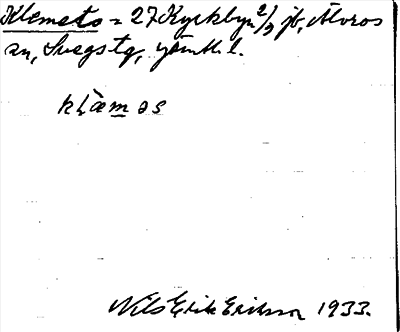 Klemets = 27 Kyrkbyn 2/3 jb, Älvros
sn, Svegs tg, Jämtl. l.
kḷæ̀m̲əs
Nils Erik Eriksson 1933.